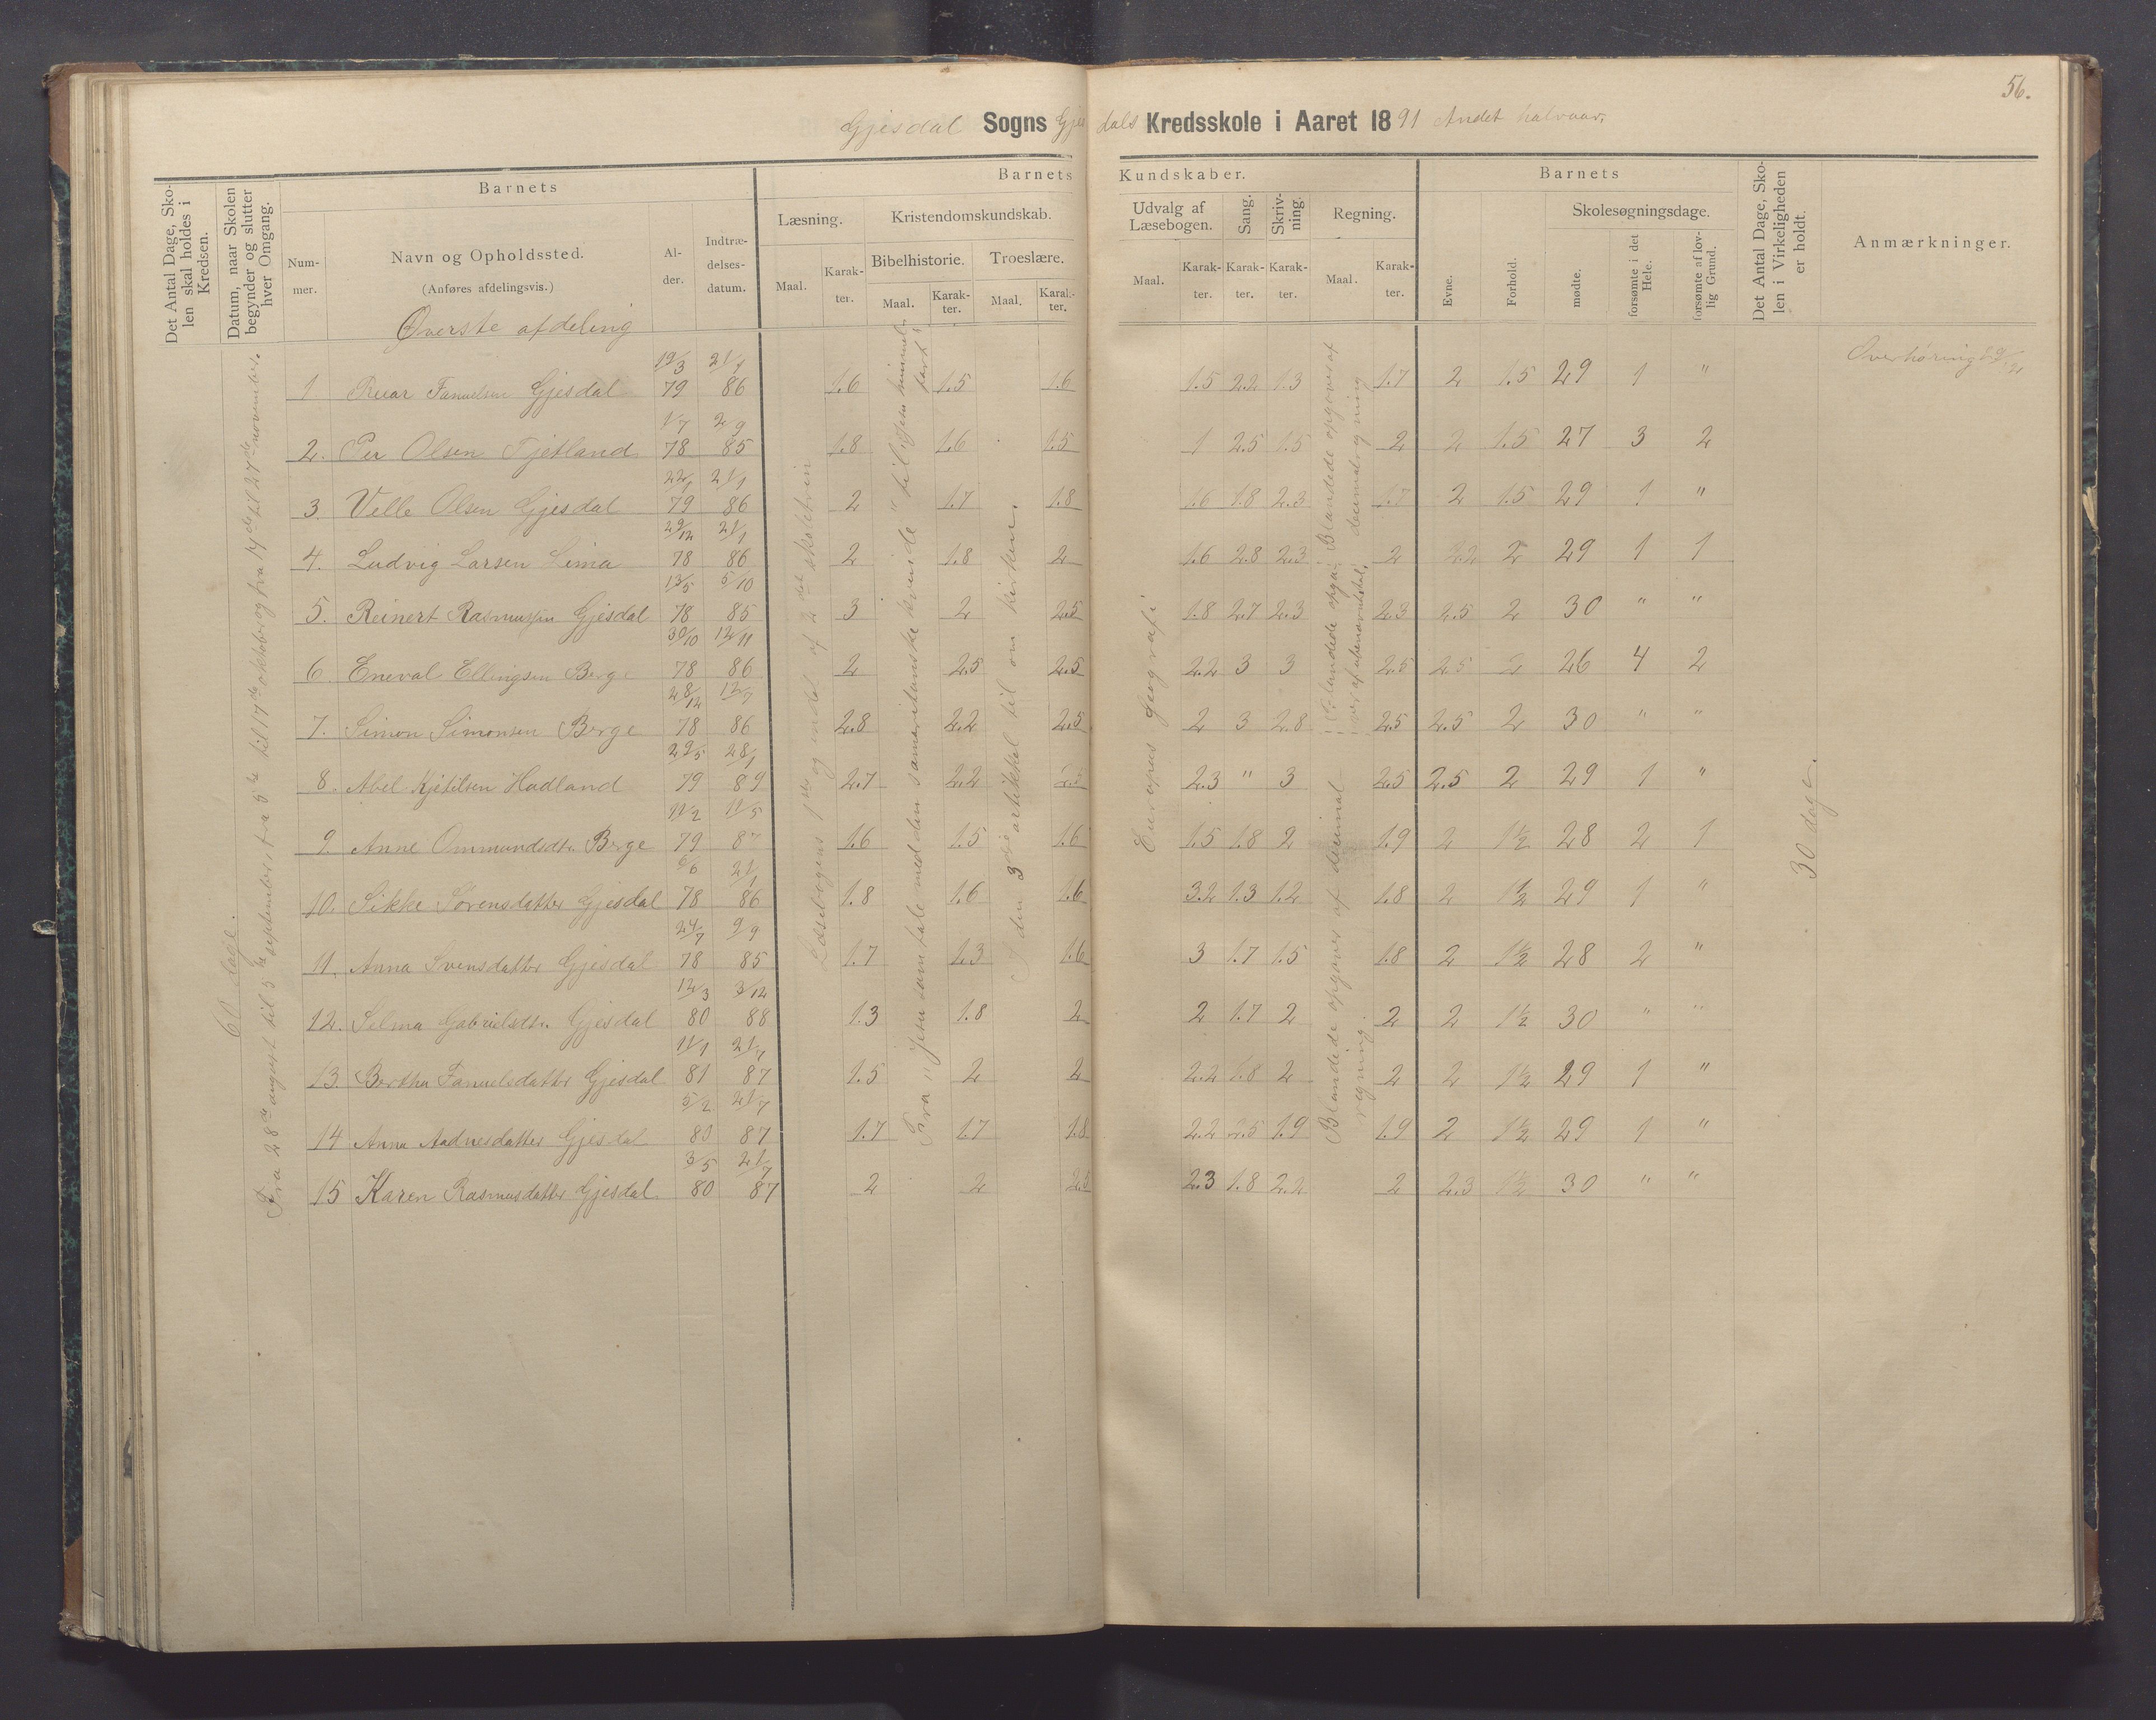 56.
Gjesdal Sogns Gjesdals Kredsskole i Aaret 1891 Andet halvaar.
Det Antal Dage, Sko-
len skal holdes i
Kredsen.
Datum, naar Skolen
begynder og slutter
hver Omgang.
Barnets
Num-
mer.
Navn og Opholdssted.
(Anføres afdelingsvis.)
Al-
der.
Indtræ-
delses-
datum.
Barnets Kundskaber.
Læsning.
Maal.
Karak-
ter.
Kristendomskundskab.
Bibelhistorie.
Maal.
Karak-
ter.
Troeslære.
Maal.
Karak-
ter.
Udvalg af
Læsebogen.
Maal.
Karak-
ter.
Sang.
Karak-
ter.
Skriv-
ning.
Karak-
ter.
Regning.
Maal.
Karak-
ter.
Barnets
Evne.
Forhold.
Skolesøgningsdage.
mødte.
forsømte i det
Hele.
forsømte af lov-
lig Grund.
Det Antal Dage, Sko-
len i Virkeligheden
er holdt.
Anmærkninger.
Øverste afdeling
Overhøring
60 dage.
Fra 28de august til 5te september fra 5te til 17de oktober og fra 14de til 27de november.
Læsebogens 1ste og endel af 2det skoletrin
Fra "Jesu samtale med den samaritanske kvinde" til "Jesu himmel-
fart"
I den 3die artikkel til om kirken.
Europas geografi
Blandede opgaver af
decimalregning
Blandede opgaver af decimal-
regning.
30 dage.
1 Gjesdal 19/3 79 21/1 86 1.6 1.5 1.6 1.5 2.2 1.3 1.7 2 1.5 29 1 "
2. Per Olsen Fjetland 1/7 78 2/9 85 1.8 1.6 1.5 1 2.5 1.5 2 2 1.5 27 3 2
3. Velle Olsen Gjesdal 22/1 79 21/1 86 2 1.7 1.8 1.6 1.8 2.3 1.7 2 1.5 29 1 "
4. Ludvig Larsen Lima 29/12 78 21/1 86 2 1.8 2 1.6 2.8 2.3 2 2.2 2 29 1 1
5. Reinert Rasmussen Gjesdal 13/5 78 5/10 85 3 2 2.5 1.8 2.7 2.3 2.3 2.5 2 30 " "
6. Eneval Ellingsen Berge 30/10 78 12/11 86 2 2.5 2.5 2.2 3 3 2.5 2.5 2 26 4 2
7. Simon Simonsen Berge 28/12 78 12/7 86 2.8 2.2 2.5 2 3 2.8 2.5 2.5 2 30 " "
8. Abel Kjetilsen Hadland 29/5 79 28/1 89 2.7 2.2 2.5 2.3 " 3 2.5 2.5 2 29 1 "
9. Anne Ommundsdtr. Berge 11/2 79 11/5 87 1.6 1.5 1.6 1.5 1.8 2 1.9 2 1½ 28 2 1
10. Sikke Sørensdatter Gjesdal 6/6 78 21/1 86 1.8 1.6 1.6 3.2 1.3 1.2 1.8 2 1½ 29 1 "
11. Anna Svensdatter Gjesdal 24/7 78 9/9 85 1.7 1.3 1.6 3 1.7 1.5 1.8 2 1½ 28 2 "
12. Selma Gabrielsdtr. Gjesdal 12/3 80 3/12 88 1.3 1.8 2 2 1.7 2 2 2 1½ 30 " "
13. Bertha Fanuelsdatter Gjesdal 11/1 81 21/7 87 1.5 2 2 2.2 1.8 2 2 2 1½ 29 1 "
14 Anna Aadnesdatter Gjesdal 5/2 80 21/7 87 1.7 1.7 1.8 2.2 2.5 1.9 1.9 2 1½ 29 1 "
15 Karen Rasmusdatter Gjesdal 3/5 80 21/7 87 2 2 2.5 2.3 1.8 2.2 2 2.3 1½ 30 " "